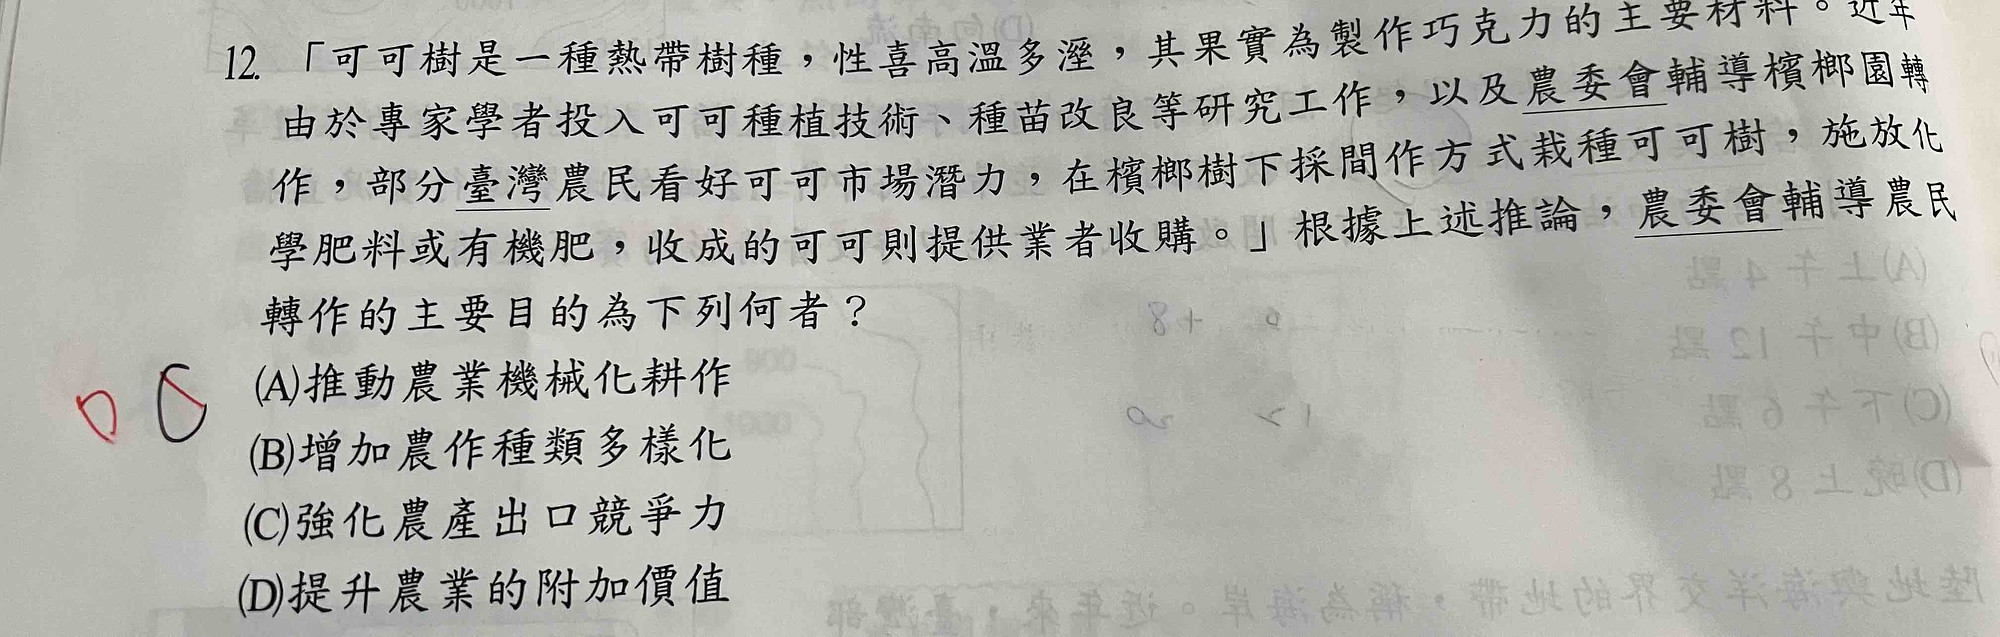 12. 「可可樹是一種熱帶樹種，性喜高溫多溼，其果實為製作巧克力的主要材料。近年
由於專家學者投入可可種植技術、種苗改良等研究工作，以及農委會輔導檳榔園轉
作，部分臺灣農民看好可可市場潛力，在檳榔樹下採間作方式栽種可可樹，施放化
學肥料或有機肥，收成的可可則提供業者收購。」根據上述推論，農委會輔導農民
轉作的主要目的為下列何者？
(A)推動農業機械化耕作
(B)增加農作種類多樣化
(C)強化農產出口競爭力
(D)提升農業的附加價值